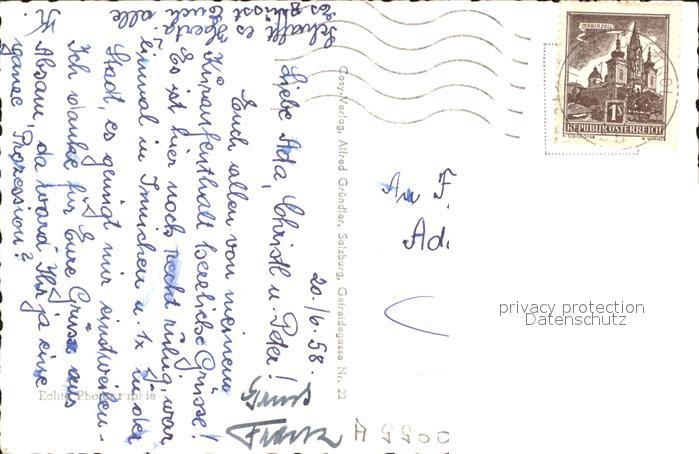 20./6.58.
Liebe Ada, Christl u. Peter!
Euch allen von meinem
Kuraufenthalt herzliche Grüsse!
Es ist hier noch recht ruhig, war
einmal in Irnichen u. 1x in der
Stadt, es genügt mir einstweilen.
Ich danke für Eure Grüsse aus
Absam, da ward Ihr ja eine
ganze Prozession?
Es grüsst Euch alle
Gruss
Franz
Cosy-Verlag, Alfred Gründler, Salzburg, Getreidegasse Nr. 22
Echte Photographie
A 5500
MARIAZELL
1S
REPUBLIK ÖSTERREICH
An F
Ad
privacy protection
Datenschutz